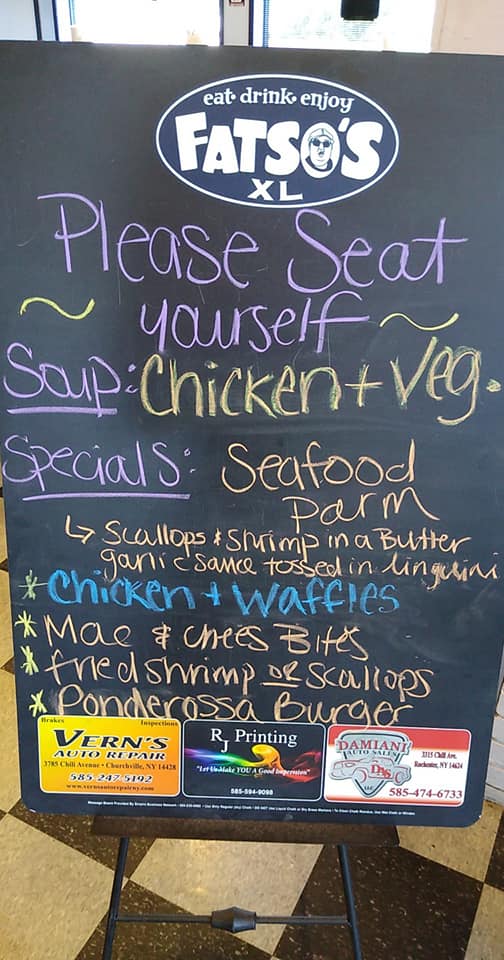 eat drink enjoy
FATSO'S
XL
Please Seat
~ yourself ~
Soup: Chicken + Veg.
Specials: Seafood
parm
↳ Scallops & Shrimp in a Butter
garlic sauce tossed in linguini
* Chicken + Waffles
* Mac & Chees Bites
* fried shrimp OR scallops
* Ponderossa Burger
Brakes Inspections
VERN'S
AUTO REPAIR
3785 Chili Avenue • Churchville, NY 14428
585-247-5192
www.vernsautorepairny.com
RJ Printing
"Let Us Make YOU A Good Impression"
585-594-9098
DAMIANI
AUTO SALES
DAS
LLC
3315 Chili Ave.
Rochester, NY 14624
585-474-6733